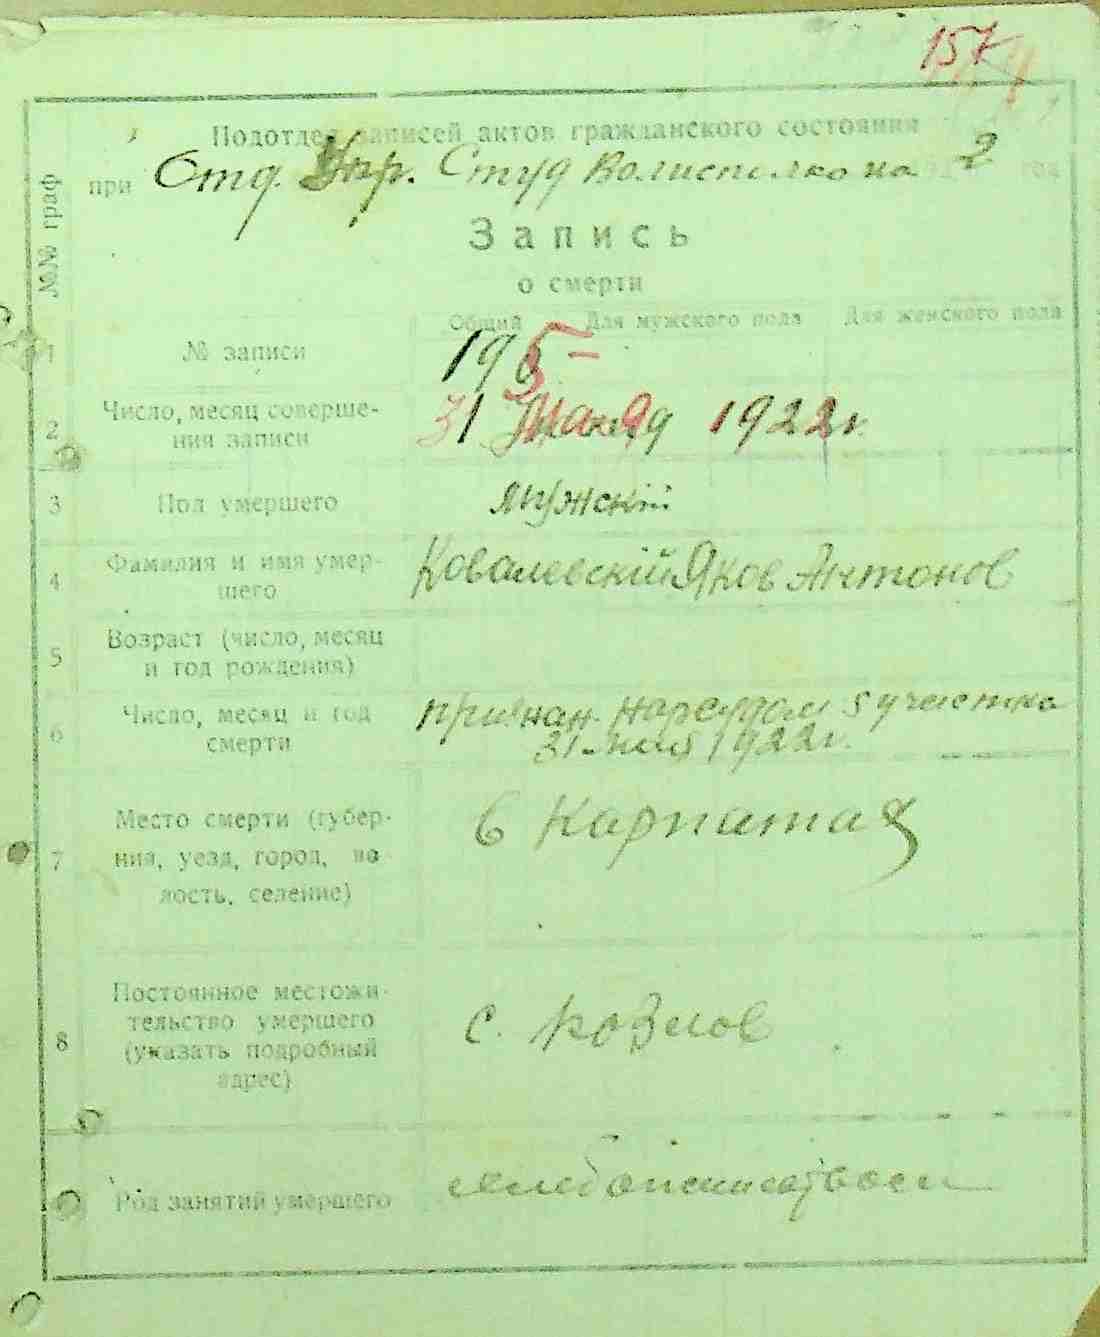 157
Подотдел записей актов гражданского состояния
при Отд. Упр. Студ Волисполко на 2 год
№№ граф
Запись
о смерти
Общий Для мужского пола Для женского пола
1 № записи 195
2 Число, месяц соверше-
ния записи 31 Мая 1922г.
3 Пол умершего мужскій
4 Фамилия и имя умер-
шего Ковалевскій Яков Антонов
5 Возраст (число, месяц
и год рождения)
6 Число, месяц и год
смерти признан. Нарсудом 5 участка
31 мая 1922г.
7 Место смерти (губер-
ния, уезд, город, во-
лость, селение) в Карпатах
8 Постоянное местожи-
тельство умершего
(указать подробный
адрес) с. Козлов
Род занятий умершего хлебопашеством